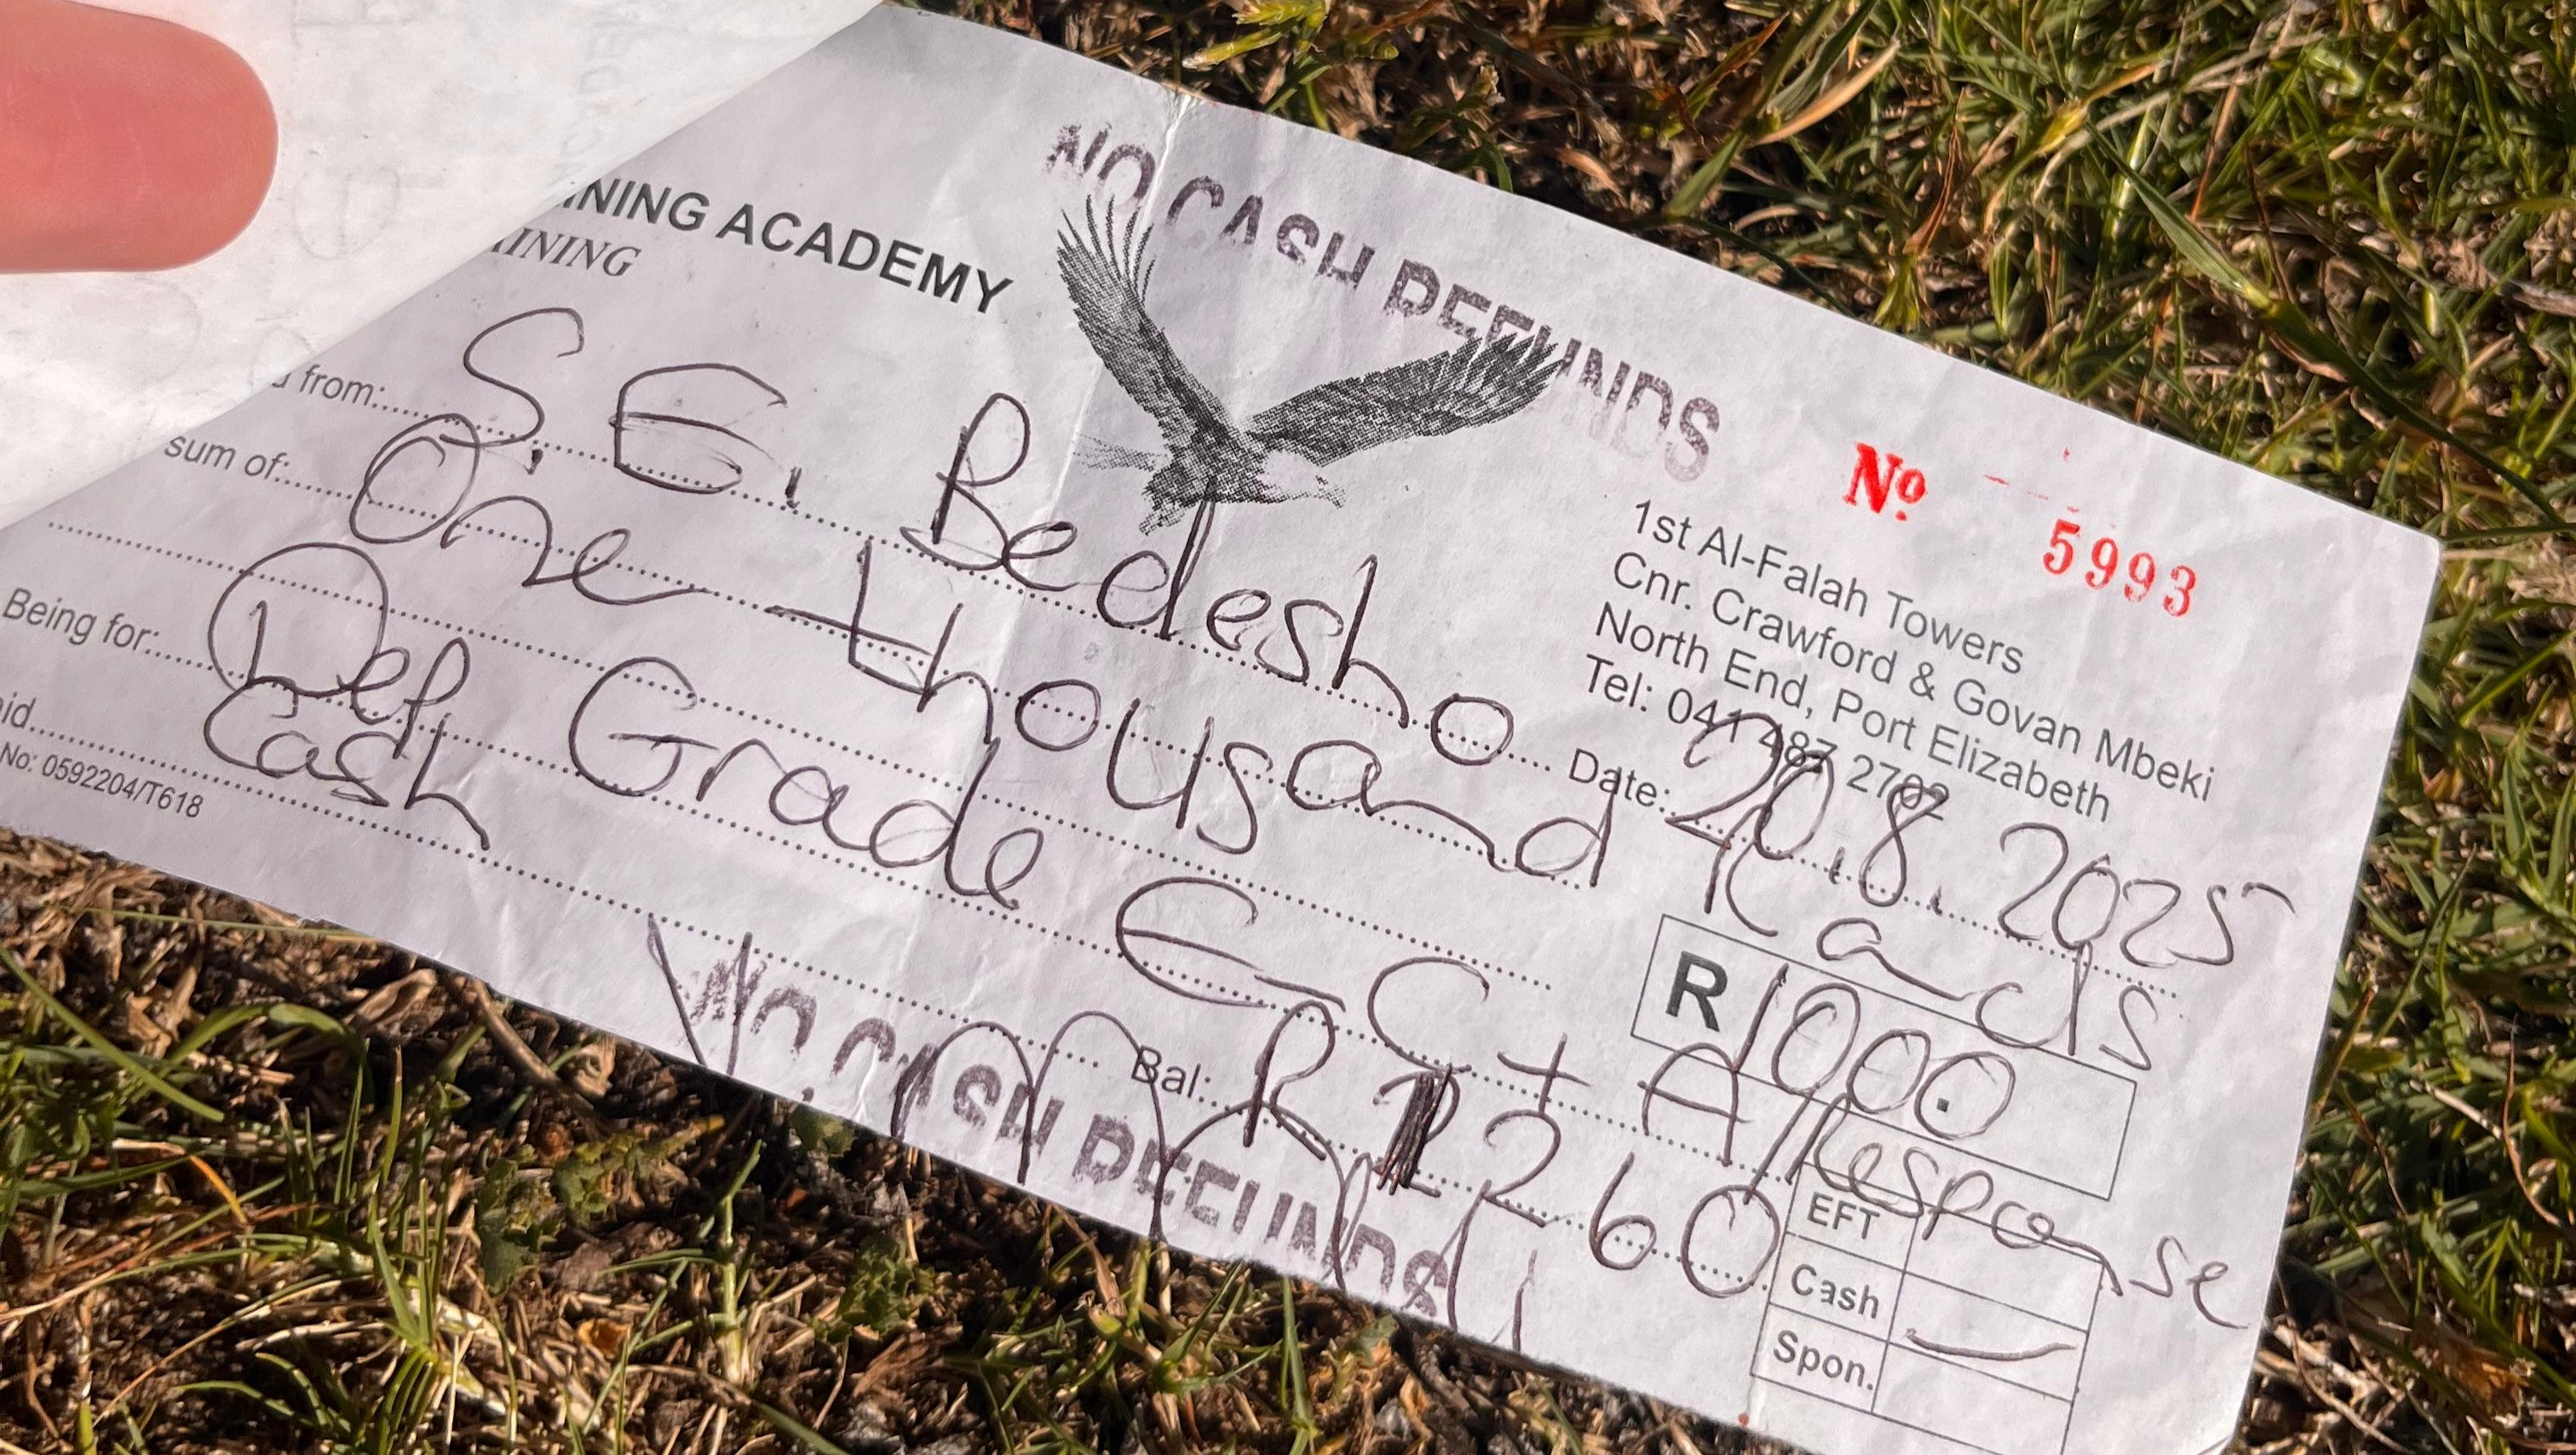 NO CASH REFUNDS
NING ACADEMY
INING
No 5993
1st Al-Falah Towers
Cnr. Crawford & Govan Mbeki
North End, Port Elizabeth
Tel: 041 487 2702
from: S. E. Bedesho Date: 20.8.2025
sum of: One thousand Rands
R 1000.
Being for: Dep Grade E C + A/Response
Cash
Bal: R 1260
No: 0592204/T618
EFT
Cash
Spon.
NO CASH REFUNDS